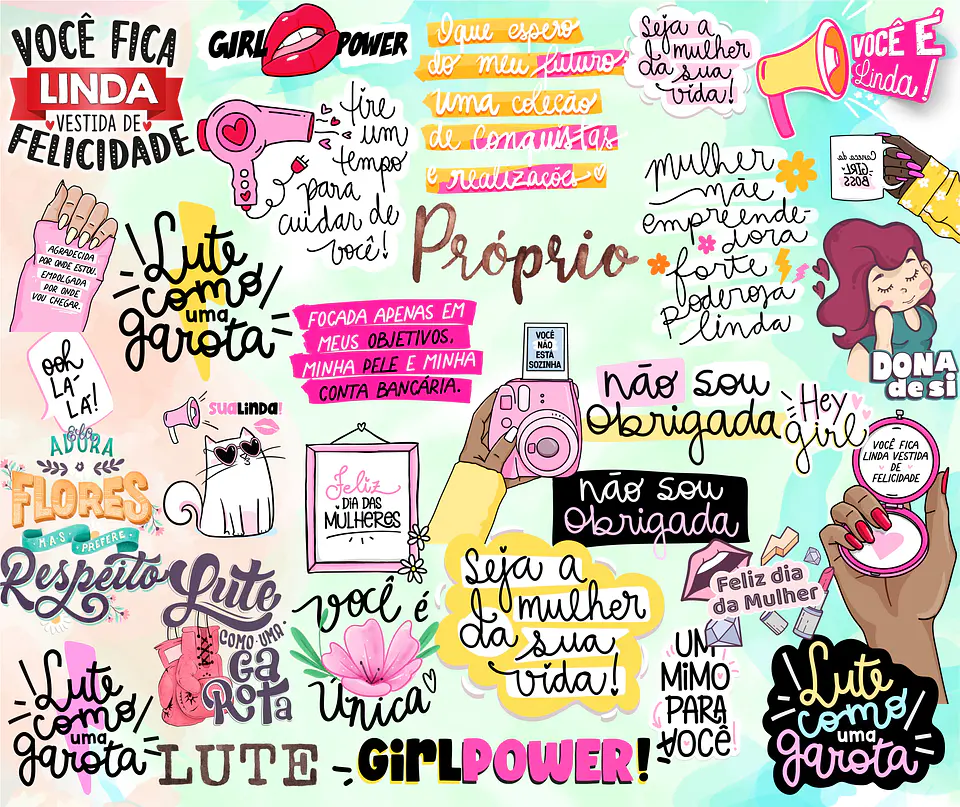 VOCÊ FICA
LINDA
VESTIDA DE
FELICIDADE
GIRL POWER
O que espero
do meu futuro
uma coleção
de conquistas
e realizações
Seja a
mulher
da sua
vida!
VOCÊ É
Linda!
tire
um
tempo
para
cuidar de
você!
Caneca da
GIRL
BOSS
mulher
mãe
empreende-
dora
forte
poderosa
linda
AGRADECIDA
POR ONDE ESTOU.
EMPOLGADA
POR ONDE
VOU CHEGAR.
Lute
como
uma
garota
Próprio
DONA
de si
FOCADA APENAS EM
MEUS OBJETIVOS,
MINHA PELE E MINHA
CONTA BANCÁRIA.
VOCÊ
NÃO
ESTÁ
SOZINHA
ooh
LÁ-
LÁ!
SUALINDA!
não sou
Obrigada
Hey
girl
VOCÊ FICA
LINDA VESTIDA
DE
FELICIDADE
Ela
ADORA
FLORES
MAS PREFERE
Respeito
Feliz
DIA DAS
MULHERES
não sou
Obrigada
Seja a
mulher
da sua
vida!
Feliz dia
da Mulher
Lute
COMO UMA
GA
ROTA
você é
Única
UM
MIMO
PARA
VOCÊ!
Lute
como
uma
garota
LUTE
GIRLPOWER!
Lute
como
uma
garota